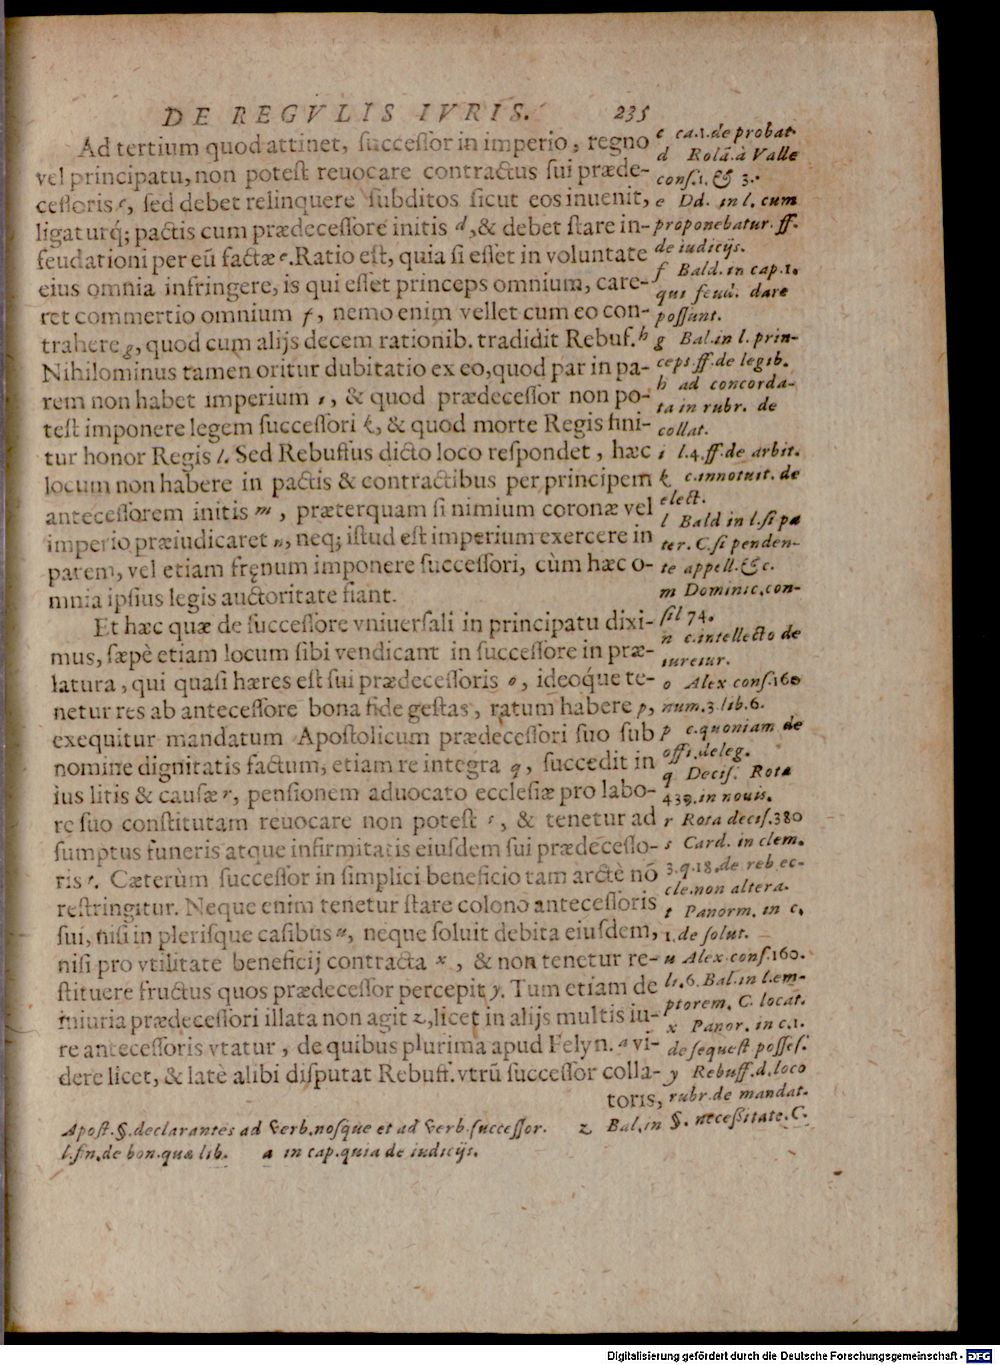 DE REGVLIS IVRIS. 235
Ad tertium quod attinet, successor in imperio, regno
vel principatu, non potest reuocare contractus sui præde-
cessoris c, sed debet relinquere subditos sicut eos inuenit,
ligaturq́; pactis cum prædecessore initis d, & debet stare in-
feudationi per eū factæ e. Ratio est, quia si esset in voluntate
eius omnia infringere, is qui esset princeps omnium, care-
ret commertio omnium f, nemo enim vellet cum eo con-
trahere g, quod cum alijs decem rationib. tradidit Rebuf. h
Nihilominus tamen oritur dubitatio ex eo, quod par in pa-
rem non habet imperium i, & quod prædecessor non po-
test imponere legem successori k, & quod morte Regis fini-
tur honor Regis l. Sed Rebuffus dicto loco respondet, hæc
locum non habere in pactis & contractibus per principem
antecessorem initis m, præterquam si nimium coronæ vel
imperio præiudicaret n, neq; istud est imperium exercere in
parem, vel etiam fręnum imponere successori, cùm hæc o-
mnia ipsius legis auctoritate fiant.
Et hæc quæ de successore vniuersali in principatu dixi-
mus, sæpè etiam locum sibi vendicant in successore in præ-
latura, qui quasi hæres est sui prædecessoris o, ideoq́ue te-
netur res ab antecessore bona fide gestas, ratum habere p,
exequitur mandatum Apostolicum prædecessori suo sub
nomine dignitatis factum, etiam re integra q, succedit in
ius litis & causæ r, pensionem aduocato ecclesiæ pro labo-
re suo constitutam reuocare non potest s, & tenetur ad
sumptus funeris atque infirmitatis eiusdem sui prædecesso-
ris t. Cæterùm successor in simplici beneficio tam arctè nō
restringitur. Neque enim tenetur stare colono antecessoris
sui, nisi in plerisque casibus u, neque soluit debita eiusdem,
nisi pro vtilitate beneficij contracta x, & non tenetur re-
stituere fructus quos prædecessor percepit y. Tum etiam de
iniuria prædecessori illata non agit z, licet in alijs multis iu-
re antecessoris vtatur, de quibus plurima apud Felyn. a vi-
dere licet, & latè alibi disputat Rebuff. vtrū successor colla-
toris,
c ca.1.de probat.
d Rolā.à Valle
cons.1. & 3.
e Dd. in l. cum
proponebatur. ff.
de iudicijs.
f Bald. in cap.1.
qui feud. dare
possunt.
g Bal.in l. prin-
ceps ff.de legib.
h ad concorda-
ta in rubr. de
collat.
i l.4.ff.de arbit.
k c.innotuit. de
elect.
l Bald in l.si pa
ter. C.si penden-
te appell.&c.
m Dominic.con-
sil 74.
n c.intellecto de
iureiur.
o Alex cons.160
num.3 lib.6.
p c.quoniam de
offi.deleg.
q Decis. Rota
439.in nouis.
r Rota decis.380
s Card. in clem.
3.q.18.de reb ec-
cle.non altera.
t Panorm. in c.
1.de solut.
u Alex cons.160.
li.6.Bal.in l.em-
ptorem. C. locat.
x Panor. in c.1.
de sequest posses.
y Rebuff.d.loco
rubr.de mandat.
Apost.§.declarantes ad verb.nosque et ad verb.successor. z Bal.in §. necessitate.C.
l.fin.de bon.quæ lib. a in cap.quia de iudicijs.
Digitalisierung gefördert durch die Deutsche Forschungsgemeinschaft - DFG